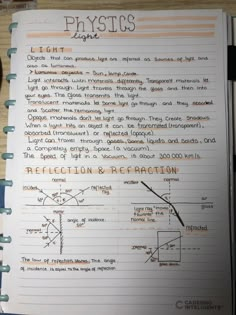 PHYSICS
light
LIGHT
Objects that can produce light are referred as Sources of light and
also as luminous.
> Luminous objects - Sun, lamp, candle.
Light interacts with materials differently. Transparent materials let
light go through. Light travels through the glass and then into
your eyes. The Glass transmits the light.
Translucent materials let some light go through and they absorbed
and scatter the remaining light.
Opaque materials don't let light go through. They create Shadows
when a light hits an object it can be Transmitted (transparent),
absorbed (translucent) or reflected (opaque).
Light can travel through gases, some liquids and solids, and
a completely empty space (a vacuum).
The Speed of light in a vacuum is about 300 000 km/s.
REFLECTION & REFRACTION
incident
normal
reflected
ray
normal
incident
air
glass
light ray moves
towards the
normal line
refracted
mirror
angle of incidence
normal
glass block
The law of reflection states: The angle
of incidence is equal to the angle of reflection.
CADERNO
INTELIGENTE